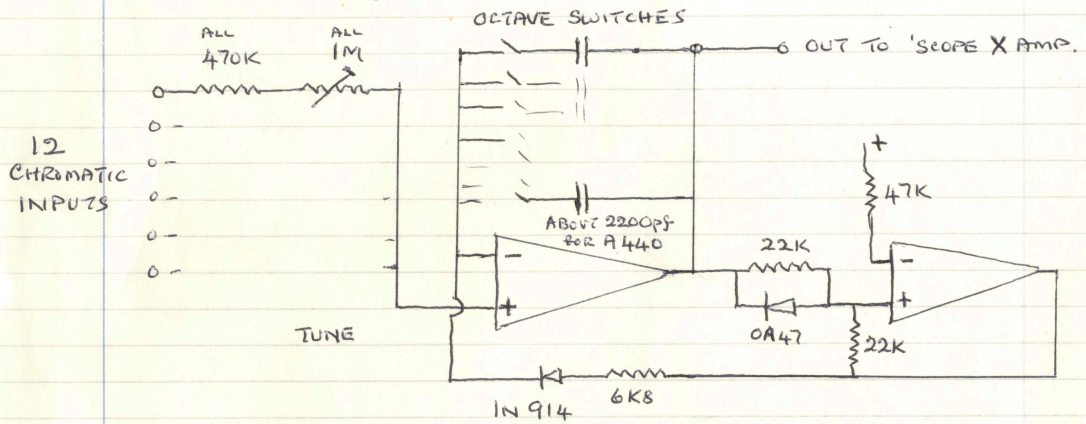 OCTAVE SWITCHES
ALL
470K
ALL
1M
OUT TO 'SCOPE X AMP.
12
CHROMATIC
INPUTS
+
47K
ABOUT 2200pf
FOR A440
-
+
22K
-
+
OA47
22K
TUNE
IN 914
6K8